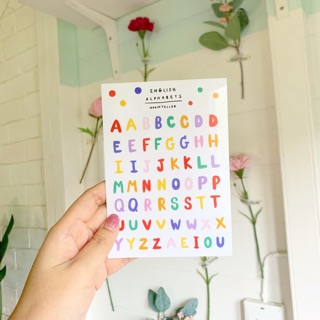 ENGLISH
ALPHABETS
A A B B C C D D
E E F F G G H H
I I J J K K L L
M M N N O O P P
Q Q R R S S T T
U U V V W W X X
Y Y Z Z A E I O U